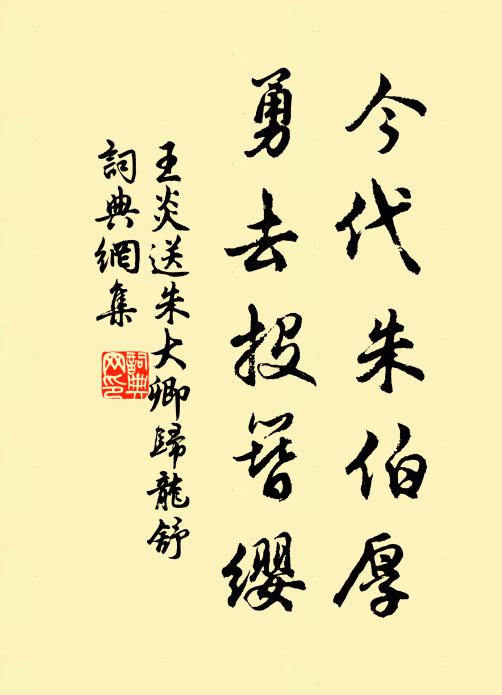 今代朱伯厚
勇去投簪缨
王炎送朱大卿歸龍舒
詞典網集
詞典网印